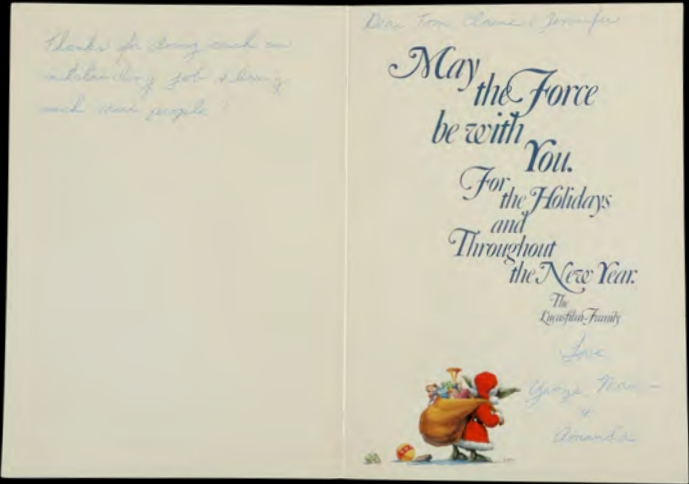 Thanks for doing such an
outstanding job & being
such nice people!
Dear Tom Claire & Jennifer
May
the Force
be with
You.
For
the Holidays
and
Throughout
the New Year.
The
Lucasfilm Family
Love
George
&
Amanda